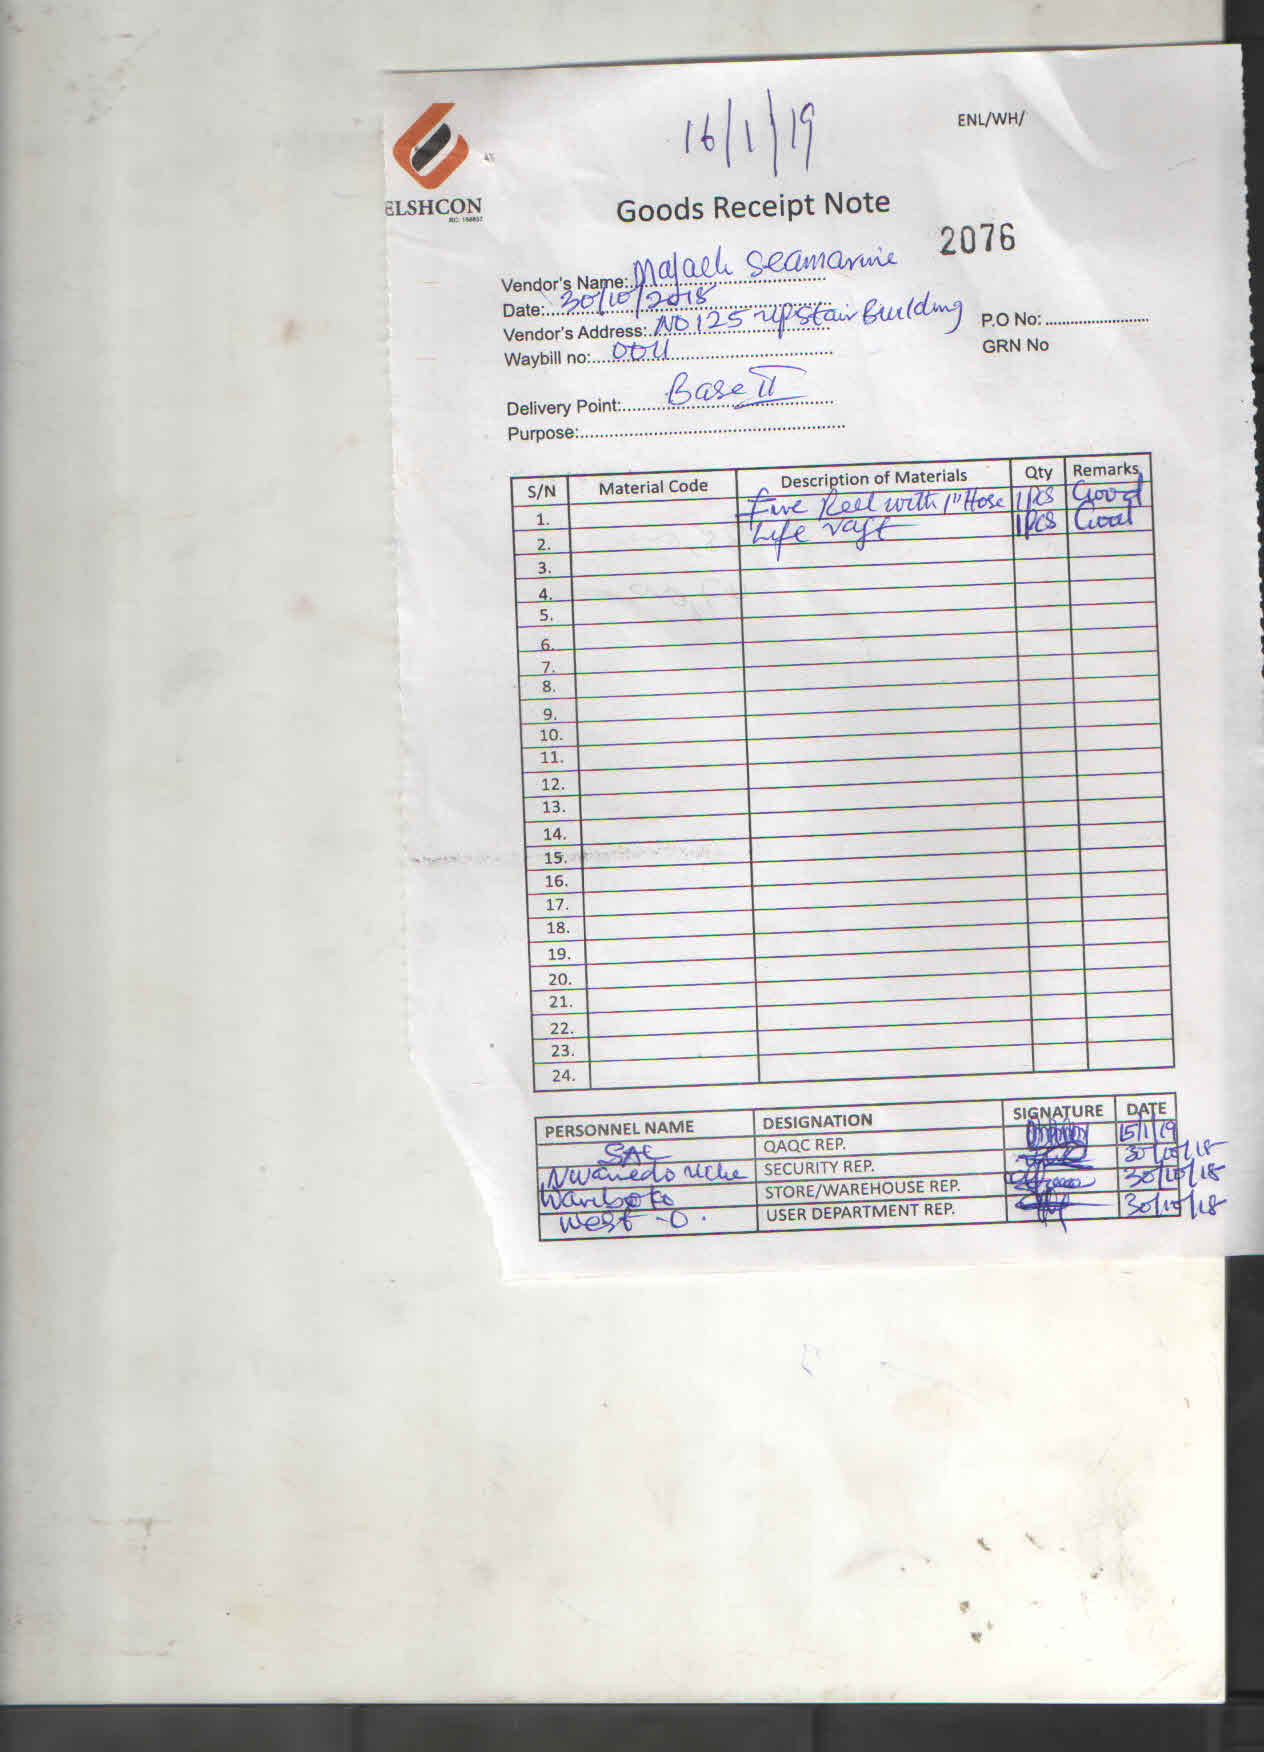 16/1/19
ENL/WH/
ELSHCON
RC: 156857
Goods Receipt Note
2076
Vendor's Name: Majaeh Seamarine
Date: 30/10/2018
Vendor's Address: NO 125 upstair Building
P.O No:
Waybill no: 0011
GRN No
Delivery Point: Base II
Purpose:
S/N Material Code Description of Materials Qty Remarks
1. Fire Reel with 1" Hose 1Pcs Good
2. Life raft 1Pcs Good
3.
4.
5.
6.
7.
8.
9.
10.
11.
12.
13.
14.
15.
16.
17.
18.
19.
20.
21.
22.
23.
24.
PERSONNEL NAME DESIGNATION SIGNATURE DATE
QAQC REP. 15/1/19
Nwanedo Uche SECURITY REP. 30/10/18
Wariboko STORE/WAREHOUSE REP. 30/10/18
West -O. USER DEPARTMENT REP. 30/10/18